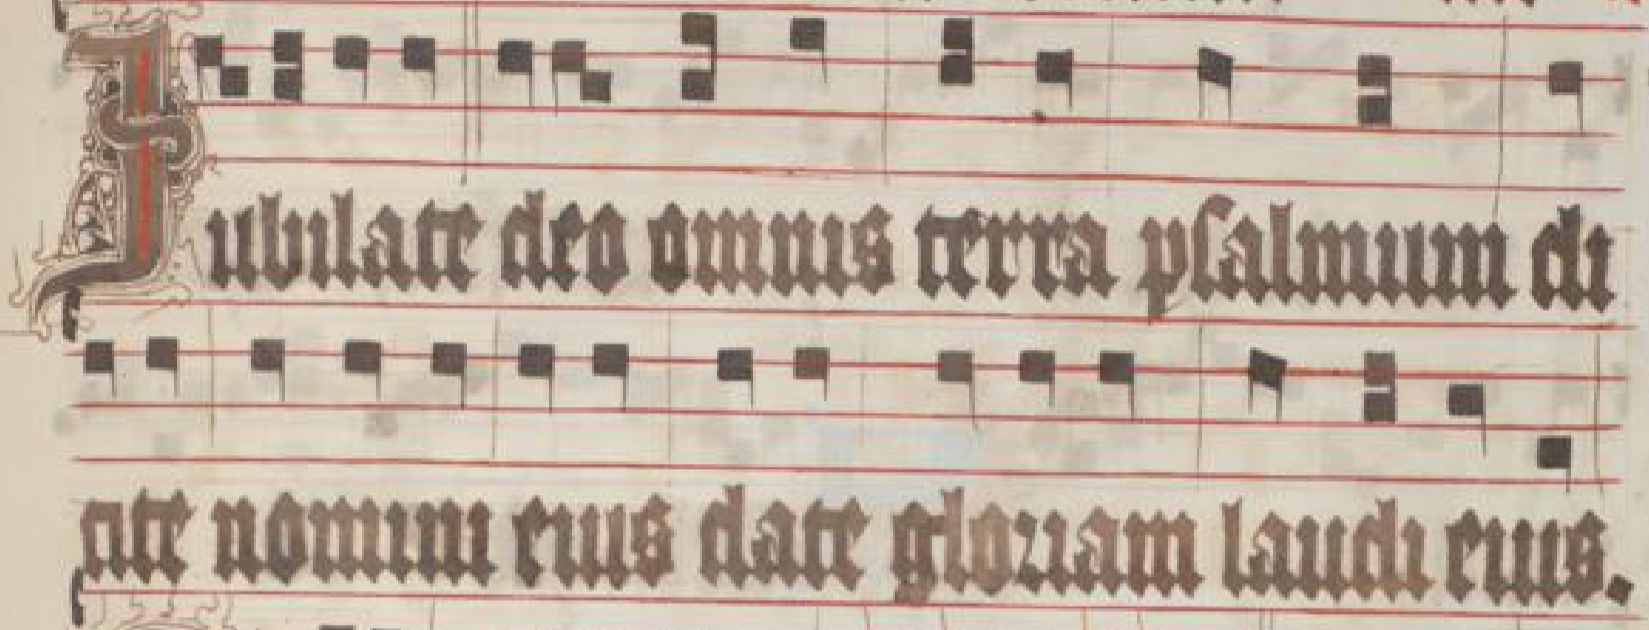 Jubilate deo omnis terra psalmum di
cite nomini eius date gloriam laudi eius.